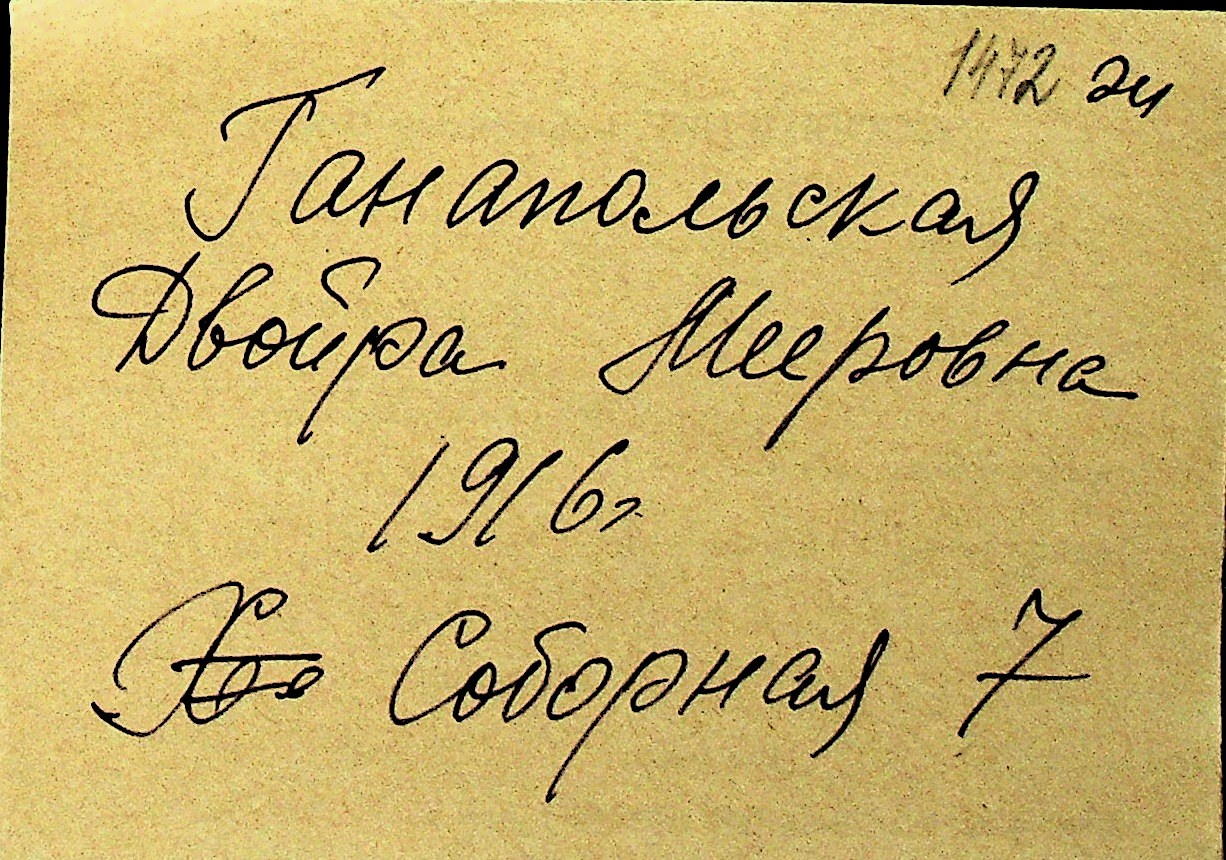 1472 эи
Ганапольская
Двойра Мееровна
1916г
Соборная 7